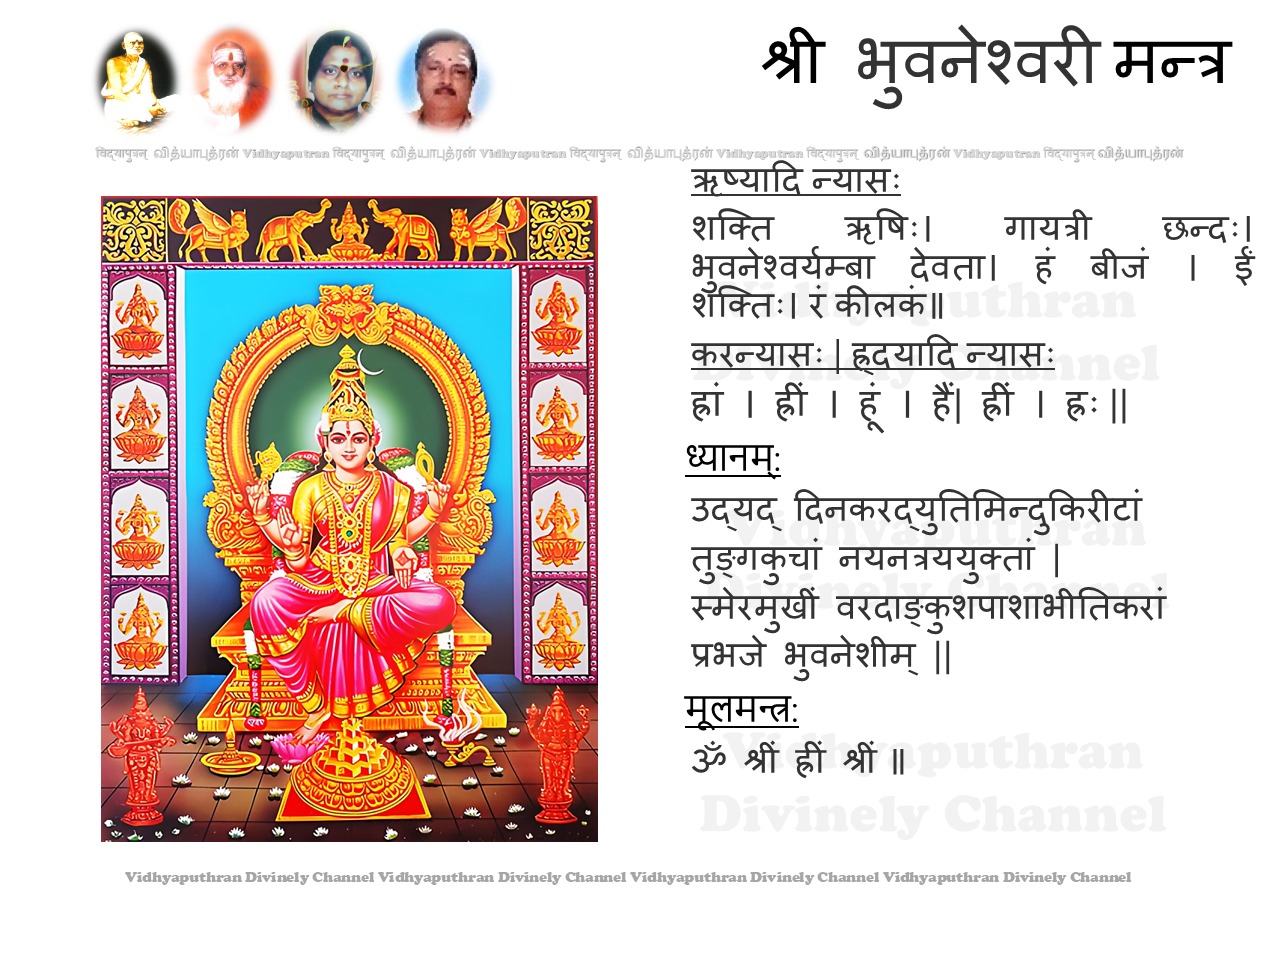 श्री भुवनेश्वरी मन्त्र
विद्यापुत्रन् வித்யாபுத்ரன் Vidhyaputran विद्यापुत्रन् வித்யாபுத்ரன் Vidhyaputran विद्यापुत्रन् வித்யாபுத்ரன் Vidhyaputran विद्यापुत्रन् வித்யாபுத்ரன் Vidhyaputran विद्यापुत्रन् வித்யாபுத்ரன்
ऋष्यादि न्यासः
शक्ति ऋषिः। गायत्री छन्दः।
भुवनेश्वर्यम्बा देवता। हं बीजं । ईं
शक्तिः। रं कीलकं॥
Vidhyaputhran
करन्यासः | ह्रदयादि न्यासः
Divinely Channel
ह्रां । ह्रीं । ह्रूं । ह्रैं| ह्रीं । ह्रः ||
ध्यानम्:
उद्यद् दिनकरद्युतिमिन्दुकिरीटां
Vidhyaputhran
तुङ्गकुचां नयनत्रययुक्तां |
Divinely Channel
स्मेरमुखीं वरदाङ्कुशपाशाभीतिकरां
प्रभजे भुवनेशीम् ||
मूलमन्त्र:
Vidhyaputhran
ॐ श्रीं ह्रीं श्रीं ॥
Divinely Channel
Vidhyaputhran Divinely Channel Vidhyaputhran Divinely Channel Vidhyaputhran Divinely Channel Vidhyaputhran Divinely Channel